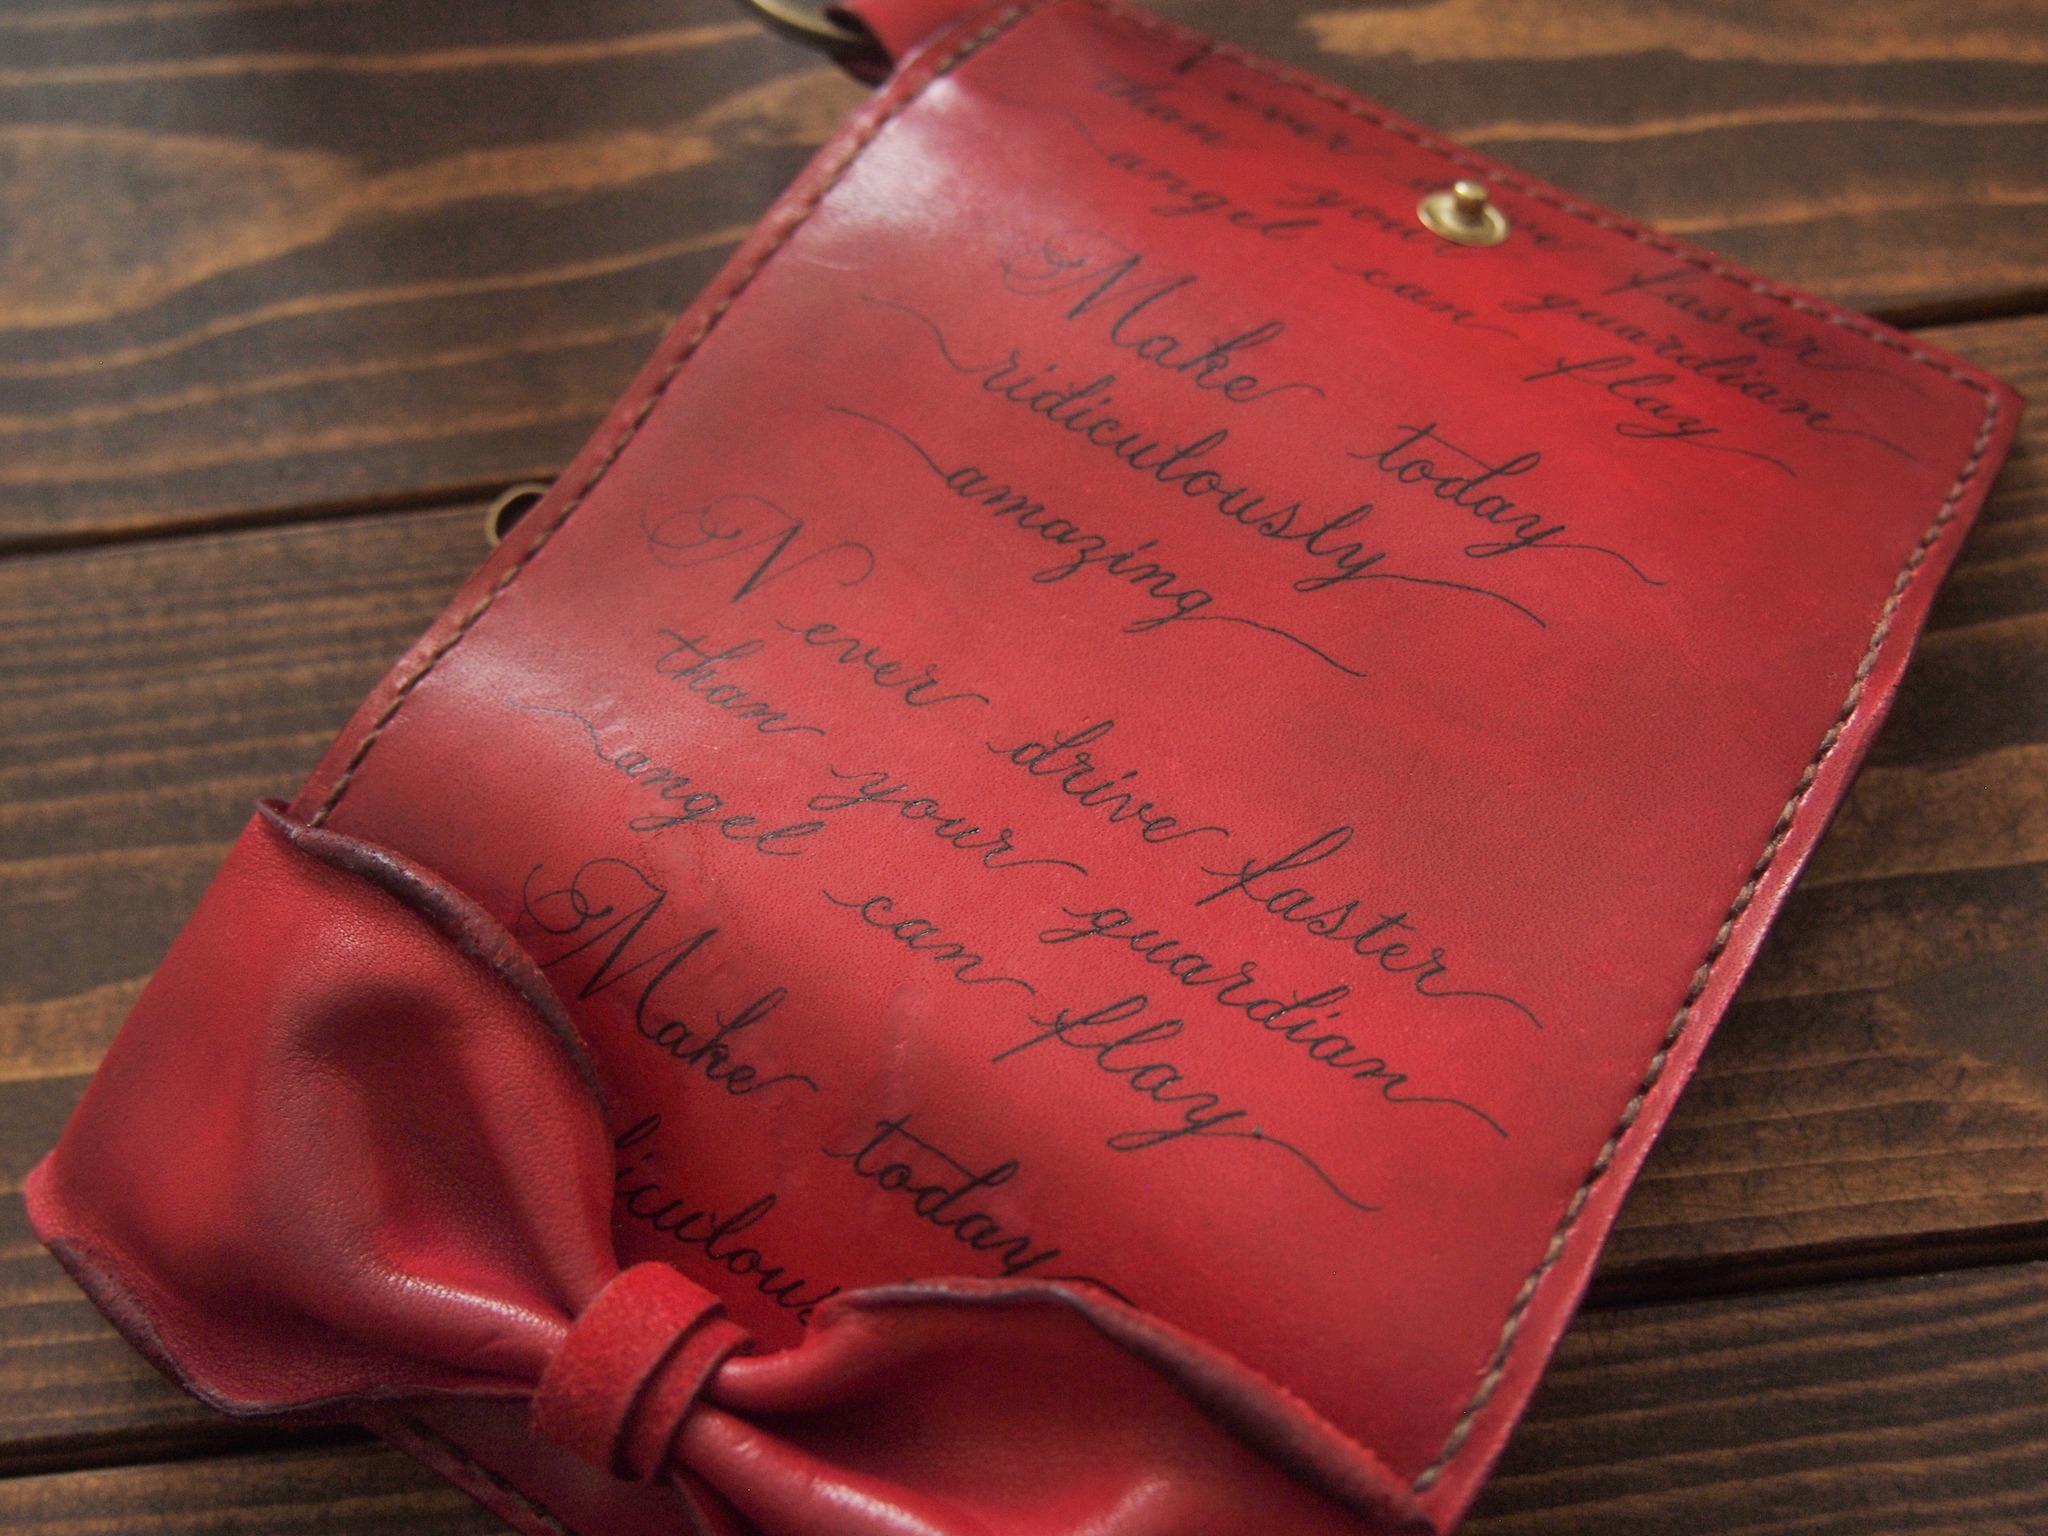 ever drive faster
than your guardian
angel can flay
Make today
ridiculously
amazing
Never drive faster
than your guardian
angel can flay
Make today
iculous